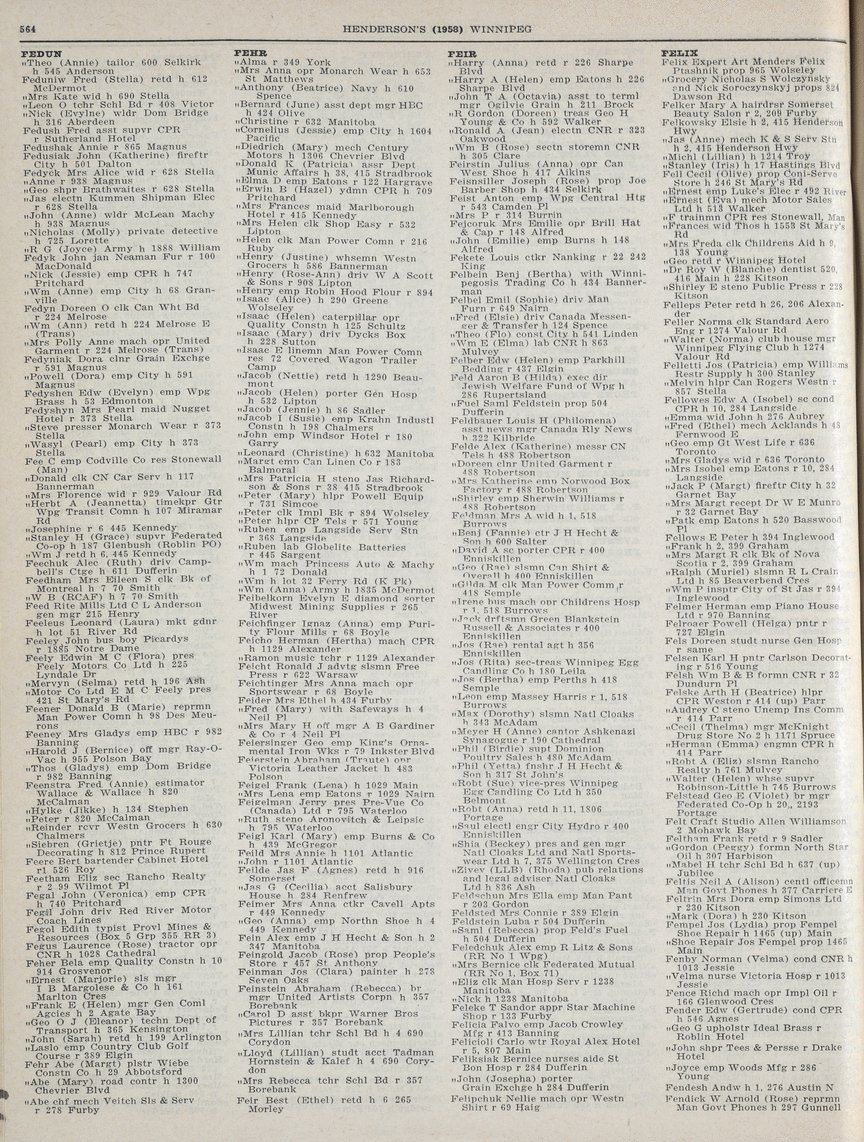 564
HENDERSON'S (1958) WINNIPEG
FEDUN
"Theo (Annie) tailor 600 Selkirk
h 545 Anderson
Feduniw Fred (Stella) retd h 612
McDermot
"Mrs Kate wid h 690 Stella
"Leon O tchr Schl Bd r 408 Victor
"Nick (Evylne) wldr Dom Bridge
h 316 Aberdeen
Fedush Fred asst supvr CPR
r Sutherland Hotel
Fedushak Annie r 865 Magnus
Fedusiak John (Katherine) fireftr
City h 501 Dalton
Fedyck Mrs Alice wid r 628 Stella
"Anne r 938 Magnus
"Geo shpr Brathwaites r 628 Stella
"Jas electn Kummen Shipman Elec
r 628 Stella
"John (Anne) wldr McLean Machy
h 938 Magnus
"Nicholas (Molly) private detective
h 725 Lorette
"R G (Joyce) Army h 1888 William
Fedyk John jan Neaman Fur r 100
MacDonald
"Nick (Jessie) emp CPR h 747
Pritchard
"Wm (Anne) emp City h 68 Gran-
ville
Fedyn Doreen O clk Can Wht Bd
r 224 Melrose
"Wm (Ann) retd h 224 Melrose E
(Trans)
"Mrs Polly Anne mach opr United
Garment r 224 Melrose (Trans)
Fedyniak Dora clnr Grain Exchge
r 591 Magnus
"Powell (Dora) emp City h 591
Magnus
Fedyshen Edw (Evelyn) emp Wpg
Brass h 53 Edmonton
Fedyshyn Mrs Pearl maid Nugget
Hotel r 373 Stella
"Steve presser Monarch Wear r 373
Stella
"Wasyl (Pearl) emp City h 373
Stella
Fee C emp Codville Co res Stonewall
(Man)
"Donald clk CN Car Serv h 117
Bannerman
"Mrs Florence wid r 929 Valour Rd
"Herbt A (Jeannetta) timekpr Gtr
Wpg Transit Comn h 107 Miramar
Rd
"Josephine r 6 445 Kennedy
"Stanley H (Grace) supvr Federated
Co-op h 187 Glenbush (Roblin PO)
"Wm J retd h 6, 445 Kennedy
Feechuk Alec (Ruth) driv Camp-
bell's Ctge h 611 Dufferin
Feedham Mrs Eileen S clk Bk of
Montreal h 7 70 Smith
"W B (RCAF) h 7 70 Smith
Feed Rite Mills Ltd C L Anderson
gen mgr 215 Henry
Feeleus Leonard (Laura) mkt gdnr
h lot 51 River Rd
Feeley John bus boy Picardys
r 1885 Notre Dame
Feely Edwin M C (Flora) pres
Feely Motors Co Ltd h 225
Lyndale Dr
"Mervyn (Selma) retd h 196 Ash
"Motor Co Ltd E M C Feely pres
421 St Mary's Rd
Feener Donald B (Marie) reprmn
Man Power Comn h 98 Des Meu-
rons
Feeney Mrs Gladys emp HBC r 982
Banning
"Harold J (Bernice) off mgr Ray-O-
Vac h 955 Polson Bay
"Thos (Gladys) emp Dom Bridge
r 982 Banning
Feenstra Fred (Annie) estimator
Wallace & Wallace h 820
McCalman
"Hylke (Jikke) h 134 Stephen
"Peter r 820 McCalman
"Reinder rcvr Westn Grocers h 630
Chalmers
"Siebren (Grietje) pntr Ft Rouge
Decorating h 812 Prince Rupert
Feere Bert bartender Cabinet Hotel
r1 526 Roy
Feetham Eliz sec Rancho Realty
r 2 99 Wilmot Pl
Fegal John (Veronica) emp CPR
h 740 Pritchard
Fegil John driv Red River Motor
Coach Lines
Fegol Edith typist Provl Mines &
Resources (Box 5 Grp 355 RR 3)
Fegus Laurence (Rose) tractor opr
CNR h 1028 Cathedral
Feher Bela emp Quality Constn h 10
914 Grosvenor
"Ernest (Marjorie) sls mgr
I B Margolese & Co h 161
Marlton Cres
"Frank E (Helen) mgr Gen Coml
Agcies h 2 Agate Bay
"Geo O J (Eleanor) techn Dept of
Transport h 365 Kensington
"John (Sarah) retd h 199 Arlington
"Laslo emp Country Club Golf
Course r 389 Elgin
Fehr Abe (Margt) plstr Wiebe
Constn Co h 29 Abbotsford
"Abe (Mary) road contr h 1300
Chevrier Blvd
"Abe chf mech Veitch Sls & Serv
r 278 Furby
FEHR
"Alma r 349 York
"Mrs Anna opr Monarch Wear h 653
St Matthews
"Anthony (Beatrice) Navy h 610
Spence
"Bernard (June) asst dept mgr HBC
h 424 Olive
"Christine r 632 Manitoba
"Cornelius (Jessie) emp City h 1604
Pacific
"Diedrich (Mary) mech Century
Motors h 1306 Chevrier Blvd
"Donald K (Patricia) assr Dept
Munic Affairs h 38, 415 Stradbrook
"Elma D emp Eatons r 122 Hargrave
"Erwin B (Hazel) ydmn CPR h 709
Pritchard
"Mrs Frances maid Marlborough
Hotel r 415 Kennedy
"Mrs Helen clk Shop Easy r 532
Lipton
"Helen clk Man Power Comn r 216
Ruby
"Henry (Justine) whsemn Westn
Grocers h 586 Bannerman
"Henry (Rose-Ann) driv W A Scott
& Sons r 908 Lipton
"Henry emp Robin Hood Flour r 894
"Isaac (Alice) h 290 Greene
Wolseley
"Isaac (Helen) caterpillar opr
Quality Constn h 125 Schultz
"Isaac (Mary) driv Dycks Box
h 228 Sutton
"Isaac E linemn Man Power Comn
res 72 Covered Wagon Trailer
Camp
"Jacob (Nettie) retd h 1290 Beau-
mont
"Jacob (Helen) porter Gen Hosp
h 532 Lipton
"Jacob (Jennie) h 86 Sadler
"Jacob I (Susie) emp Krahn Industl
Constn h 198 Chalmers
"John emp Windsor Hotel r 180
Garry
"Leonard (Christine) h 632 Manitoba
"Margt emn Can Linen Co r 183
Balmoral
"Mrs Patricia H steno Jas Richard-
son & Sons r 38 415 Stradbrook
"Peter (Mary) hlpr Powell Equip
r 731 Simcoe
"Peter clk Impl Bk r 894 Wolseley
"Peter hlp CP Tels r 571 Young
"Ruben emp Langside Serv Stn
r 368 Langside
"Ruben lab Globelite Batteries
r 445 Sargent
"Wm mach Princess Auto & Machy
h 1 72 Donald
"Wm h lot 32 Ferry Rd (K Pk)
"Wm (Anna) Army h 1835 McDermot
Feibelkorn Evelyn E diamond sorter
Midwest Mining Supplies r 265
River
Feichfinger Ignaz (Anna) emp Puri-
ty Flour Mills r 68 Boyle
Feicho Herman (Hertha) mach CPR
h 1129 Alexander
"Ramon music tchr r 1129 Alexander
Feicht Ronald J advtg slsmn Free
Press r 622 Warsaw
Feichtinger Mrs Anna mach opr
Sportswear r 68 Boyle
Feider Mrs Ethel h 434 Furby
"Fred (Mary) with Safeways h 4
Neil Pl
"Mrs Mary H off mgr A B Gardiner
& Co r 4 Neil Pl
Feiersinger Geo emp King's Orna-
mental Iron Wks r 79 Inkster Blvd
Feierstein Abraham (Traute) opr
Victoria Leather Jacket h 483
Polson
Feigel Frank (Lena) h 1029 Main
"Mrs Lena emp Eatons r 1029 Nairn
Feigelman Jerry pres Pre-Vue Co
(Canada) Ltd r 795 Waterloo
"Ruth steno Aronovitch & Leipsic
h 795 Waterloo
Feigl Karl (Mary) emp Burns & Co
r 439 McGregor
Feild Mrs Annie h 1101 Atlantic
"John r 1101 Atlantic
Feilde Jas F (Agnes) retd h 916
Somerset
"Jas G (Cecilia) acct Salisbury
House h 284 Renfrew
Felmer Mrs Anna ctkr Cavell Apts
r 449 Kennedy
"Geo (Anna) emp Northn Shoe h 4
449 Kennedy
Fein Alex emp J H Hecht & Son h 2
347 Manitoba
Feingold Jacob (Rose) prop People's
Store r 457 St Anthony
Feinman Jos (Clara) painter h 278
Seven Oaks
Feinstein Abraham (Rebecca) br
mgr United Artists Corpn h 357
Borebank
"Carol D asst bkpr Warner Bros
Pictures r 357 Borebank
"Mrs Lillian tchr Schl Bd h 4 690
Corydon
"Lloyd (Lillian) studt acct Tadman
Hornstein & Kalef h 4 690 Cory-
don
"Mrs Rebecca tchr Schl Bd r 357
Borebank
Feir Best (Ethel) retd h 6 265
Morley
FEIR
"Harry (Anna) retd r 226 Sharpe
Blvd
"Harry A (Helen) emp Eatons h 226
Sharpe Blvd
"John T A (Octavia) asst to terml
mgr Ogilvie Grain h 211 Brock
"R Gordon (Doreen) treas Geo H
Young & Co h 592 Walker
"Ronald A (Jean) electn CNR r 323
Oakwood
"Wm B (Rose) sectn storemn CNR
h 305 Clare
Feirstin Julius (Anna) opr Can
West Shoe h 417 Aikins
Feisnsiller Joseph (Rose) prop Joe
Barber Shop h 434 Selkirk
Feist Anton emp Wpg Central Htg
r 543 Camden Pl
"Mrs P r 314 Burrin
Fejcoruk Mrs Emilie opr Brill Hat
& Cap r 148 Alfred
"John (Emilie) emp Burns h 148
Alfred
Fekete Louis ctkr Nanking r 22 242
King
Felbein Benj (Bertha) with Winni-
pegosis Trading Co h 434 Banner-
man
Felbel Emil (Sophie) driv Man
Furn r 649 Nairn
"Fred (Elsie) driv Canada Messen-
ger & Transfer h 124 Spence
"Theo (Flo) constn City h 541 Linden
"Wm E (Elma) lab CNR h 863
Mulvey
Felber Edw (Helen) emp Parkhill
Bedding r 437 Elgin
Feld Aaron B (Hilda) exec dir
Jewish Welfare Fund of Wpg h
286 Rupertsland
"Fuel Saml Feldstein prop 504
Dufferin
Feldbauer Louis H (Philomena)
asst news mgr Canada Rly News
h 322 Kilbride
Felde Alex (Katherine) messr CN
Tels h 488 Robertson
"Doreen clnr United Garment r
488 Robertson
"Mrs Katherine emp Norwood Box
Factory r 488 Robertson
"Shirley emp Sherwin Williams r
488 Robertson
Feldman Mrs A wid h 1, 518
Burrows
"Benj (Fannie) ctr J H Hecht &
Son h 600 Salter
"David A sc porter CPR r 400
Enniskillen
"Geo (Rae) slsmn Can Shirt &
Overall h 400 Enniskillen
"Gilda M clk Man Power Comm
418 Semple
"Irene bus mach opr Childrens Hosp
r 1, 518 Burrows
"Jack drftsmn Green Blankstein
Russell & Associates r 400
Enniskillen
"Jos (Rae) rental agt h 356
Enniskillen
"Jos (Rita) sec-treas Winnipeg Egg
Candling Co h 180 Leila
"Jos (Bertha) emp Perths h 418
Semple
"Leon emp Massey Harris r 1, 518
Burrows
"Max (Dorothy) slsmn Natl Cloaks
h 343 McAdam
"Meyer H (Anne) cantor Ashkenazi
Synagogue r 190 Cathedral
"Phil (Birdie) supt Dominion
Poultry Sales h 480 McAdam
"Phil (Yetta) fnshr J H Hecht &
Son h 317 St John's
"Robt (Sue) vice-pres Winnipeg
Egg Candling Co Ltd h 350
Belmont
"Robt (Anna) retd h 11, 1806
Portage
"Saul electl engr City Hydro r 400
Enniskillen
"Shia (Beckey) pres and gen mgr
Natl Cloaks Ltd and Natl Sports-
wear Ltd h 7, 375 Wellington Cres
"Zivev (LLB) (Rhoda) pub relations
and legal adviser Natl Cloaks
Ltd h 836 Ash
Feldschun Mrs Ella emp Man Pant
r 203 Gordon
Feldsted Mrs Connie r 389 Elgin
Feldstein Luba r 504 Dufferin
"Saml (Rebecca) prop Feld's Fuel
h 504 Dufferin
Feledchuk Alex emp R Litz & Sons
(RR No 1 Wpg)
"Mrs Bernice clk Federated Mutual
(RR No 1, Box 71)
"Eliz clk Man Hosp Serv r 1238
Manitoba
"Nick h 1238 Manitoba
Feleke T Sandor appr Star Machine
Shop r 133 Furby
Felicia Falvo emp Jacob Crowley
Mfg r 413 Banning
Felicioli Carlo wtr Royal Alex Hotel
r 5, 807 Main
Feliksiak Bernice nurses aide St
Bon Hosp r 284 Dufferin
"John (Josepha) porter
Grain Exchge h 284 Dufferin
Felipchuk Nellie mach opr Westn
Shirt r 69 Haig
FELIX
Felix Expert Art Menders Felix
Ptashnik prop 965 Wolseley
"Grocery Nicholas S Wolczynsky
and Nick Soroczynskyj props 824
Dawson Rd
Felker Mary A hairdrsr Somerset
Beauty Salon r 2, 209 Furby
Felkowsky Elsie h 2, 415 Henderson
Hwy
"Jas (Anne) mech K & S Serv Stn
h 2, 415 Henderson Hwy
"Michl (Lillian) h 1214 Troy
"Stanley (Iris) h 17 Hastings Blvd
Fell Cecil (Olive) prop Coni-Serve
Store h 246 St Mary's Rd
"Ernest emp Luke's Elec r 492 River
"Ernest (Eva) mech Motor Sales
Ltd h 513 Walker
"F trainmn CPR res Stonewall, Man
"Frances wid Thos h 1553 St Mary's
Rd
"Mrs Freda clk Childrens Aid h 9,
138 Young
"Geo retd r Winnipeg Hotel
"Dr Roy W (Blanche) dentist 520,
416 Main h 228 Kitson
"Shirley E steno Public Press r 228
Kitson
Felleps Peter retd h 26, 206 Alexan-
der
Feller Norma clk Standard Aero
Eng r 1274 Valour Rd
"Walter (Norma) club house mgr
Winnipeg Flying Club h 1274
Valour Rd
Felletti Jos (Patricia) emp Williams
Restr Supply h 300 Stanley
"Melvin hlpr Can Rogers Westn r
857 Stella
Fellowes Edw A (Isobel) sc cond
CPR h 10, 284 Langside
"Emma wid John h 276 Aubrey
"Fred (Ethel) mech Acklands h 48
Fernwood E
"Geo emp Gt West Life r 636
Toronto
"Mrs Gladys wid r 636 Toronto
"Mrs Isobel emp Eatons r 10, 284
Langside
"Jack P (Margt) fireftr City h 32
Garnet Bay
"Mrs Margt recept Dr W E Munro
r 32 Garnet Bay
"Patk emp Eatons h 520 Basswood
Pl
Fellows E Peter h 394 Inglewood
"Frank h 2, 399 Graham
"Mrs Margt R clk Bk of Nova
Scotia r 2, 399 Graham
"Ralph (Muriel) slsmn R L Crain
Ltd h 85 Beaverbend Cres
"Wm P insptr City of St Jas r 394
Inglewood
Felmer Herman emp Piano House
Ltd r 970 Banning
Felrouer Powell (Helga) pntr r
727 Elgin
Fels Doreen studt nurse Gen Hosp
r same
Felsen Karl H pntr Carlson Decorat-
ing r 516 Young
Felsh Wm B & B formn CNR r 32
Dundurn Pl
Felske Arth H (Beatrice) hlpr
CPR Weston r 414 (up) Parr
"Audrey C steno Unemp Ins Comn
r 414 Parr
"Cecil (Thelma) mgr McKnight
Drug Store No 2 h 1171 Spruce
"Herman (Emma) engmn CPR h
414 Parr
"Robt A (Eliz) slsmn Rancho
Realty h 761 Mulvey
"Walter (Helen) whse supvr
Robinson-Little h 745 Burrows
Felstead Geo E (Violet) br mgr
Federated Co-Op h 20,, 2193
Portage
Felt Craft Studio Allen Williamson
2 Mohawk Bay
Feltham Frank retd r 9 Sadler
"Gordon (Peggy) formn North Star
Oil h 307 Harbison
"Mabel H tchr Schl Bd h 637 (up)
Jubilee
Feltis Neil A (Alison) centl officemn
Man Govt Phones h 377 Carriere E
Feltrin Mrs Dora emp Simons Ltd
r 230 Kitson
"Mark (Dora) h 230 Kitson
Fempel Jos (Lydia) prop Fempel
Shoe Repair h 1465 (up) Main
"Shoe Repair Jos Fempel prop 1465
Main
Fenby Norman (Velma) cond CNR h
1013 Jessie
"Velma nurse Victoria Hosp r 1013
Jessie
Fence Richd mach opr Impl Oil r
166 Glenwood Cres
Fender Edw (Gertrude) cond CPR
h 546 Agnes
"Geo G upholstr Ideal Brass r
Roblin Hotel
"John shpr Tees & Persse r Drake
Hotel
"Joyce emp Woods Mfg r 286
Young
Fendesh Andw h 1, 276 Austin N
Fendick W Arnold (Rose) reprmn
Man Govt Phones h 297 Gunnell